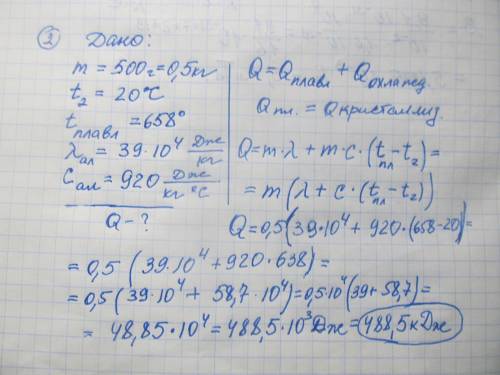 ② Дано:
m = 500г = 0,5кг
t₂ = 20°C
t плавл = 658°
λ ал = 39·10⁴ Дж/кг
C ал = 920 Дж/кг °C
Q - ?
Q = Q плавл + Q охлажд.
Q пл. = Q кристаллиз.
Q = m·λ + m·c·(t пл - t₂) =
= m(λ + c·(t пл - t₂))
Q = 0,5(39·10⁴ + 920·(658-20)) =
= 0,5 (39·10⁴ + 920·638) =
= 0,5(39·10⁴ + 58,7·10⁴) = 0,5·10⁴(39 + 58,7) =
= 48,85·10⁴ = 488,5·10³ Дж = 488,5 кДж